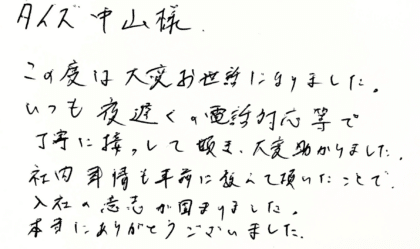 タイズ 中山様
この度は大変お世話になりました。
いつも夜遅くの電話対応等で
丁寧に接っして頂き、大変助かりました。
社内事情も事前に教えて頂いたことで、
入社の意志が固まりました。
本当にありがとうございました。